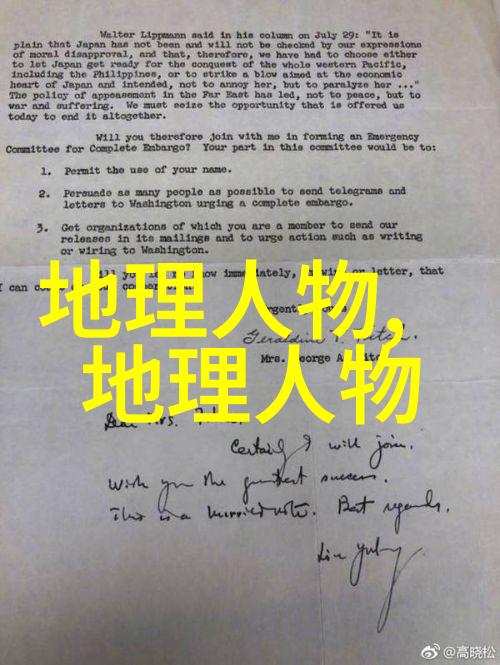 Walter Lippmann said in his column on July 29: "It is
plain that Japan has not been and will not be checked by our expressions
of moral disapproval, and that, therefore, we have had to choose either
to let Japan get ready for the conquest of the whole western Pacific,
including the Philippines, or to strike a blow aimed at the economic
heart of Japan and intended, not to annoy her, but to paralyze her ..."
The policy of appeasement in the Far East has led, not to peace, but to
war and suffering. We must seize the opportunity that is offered us
today to end it altogether.
Will you therefore join with me in forming an Emergency
Committee for Complete Embargo? Your part in this committee would be to:
1. Permit the use of your name.
2. Persuade as many people as possible to send telegrams and
letters to Washington urging a complete embargo.
3. Get organizations of which you are a member to send our
releases in its mailings and to urge action such as writing
or wiring to Washington.
immediately, letter, that
can
地理人物,
地理人物
Geraldine T. Fitch
Mrs. George A.
Dear Mrs.
Certainly I will join.
Wish you the greatest success.
This is a hurried note. Best regards.
Lin Yutang
@高晓松